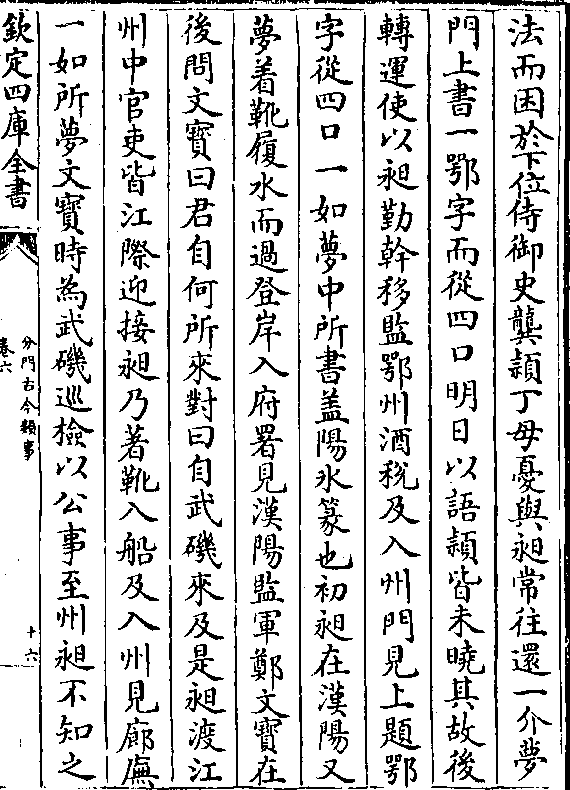 法而困於下位侍御史龔頴丁母憂與昶常往還一介夢
門上書一鄂字而從四口明日以語頴皆未曉其故後
轉運使以昶勤幹移監鄂州酒稅及入州門見上題鄂
字從四口一如夢中所書盖陽氷篆也初昶在漢陽又
夢着靴履水而過登岸入府署見漢陽監軍鄭文寶在
後問文寶曰君自何所來對曰自武磯來及是昶渡江
州中官吏皆江際迎接昶乃著靴入船及入州見廊廡
一如所夢文寶時為武磯巡檢以公事至州昶不知之
欽定四庫全書
分門古今類事
卷六
十六